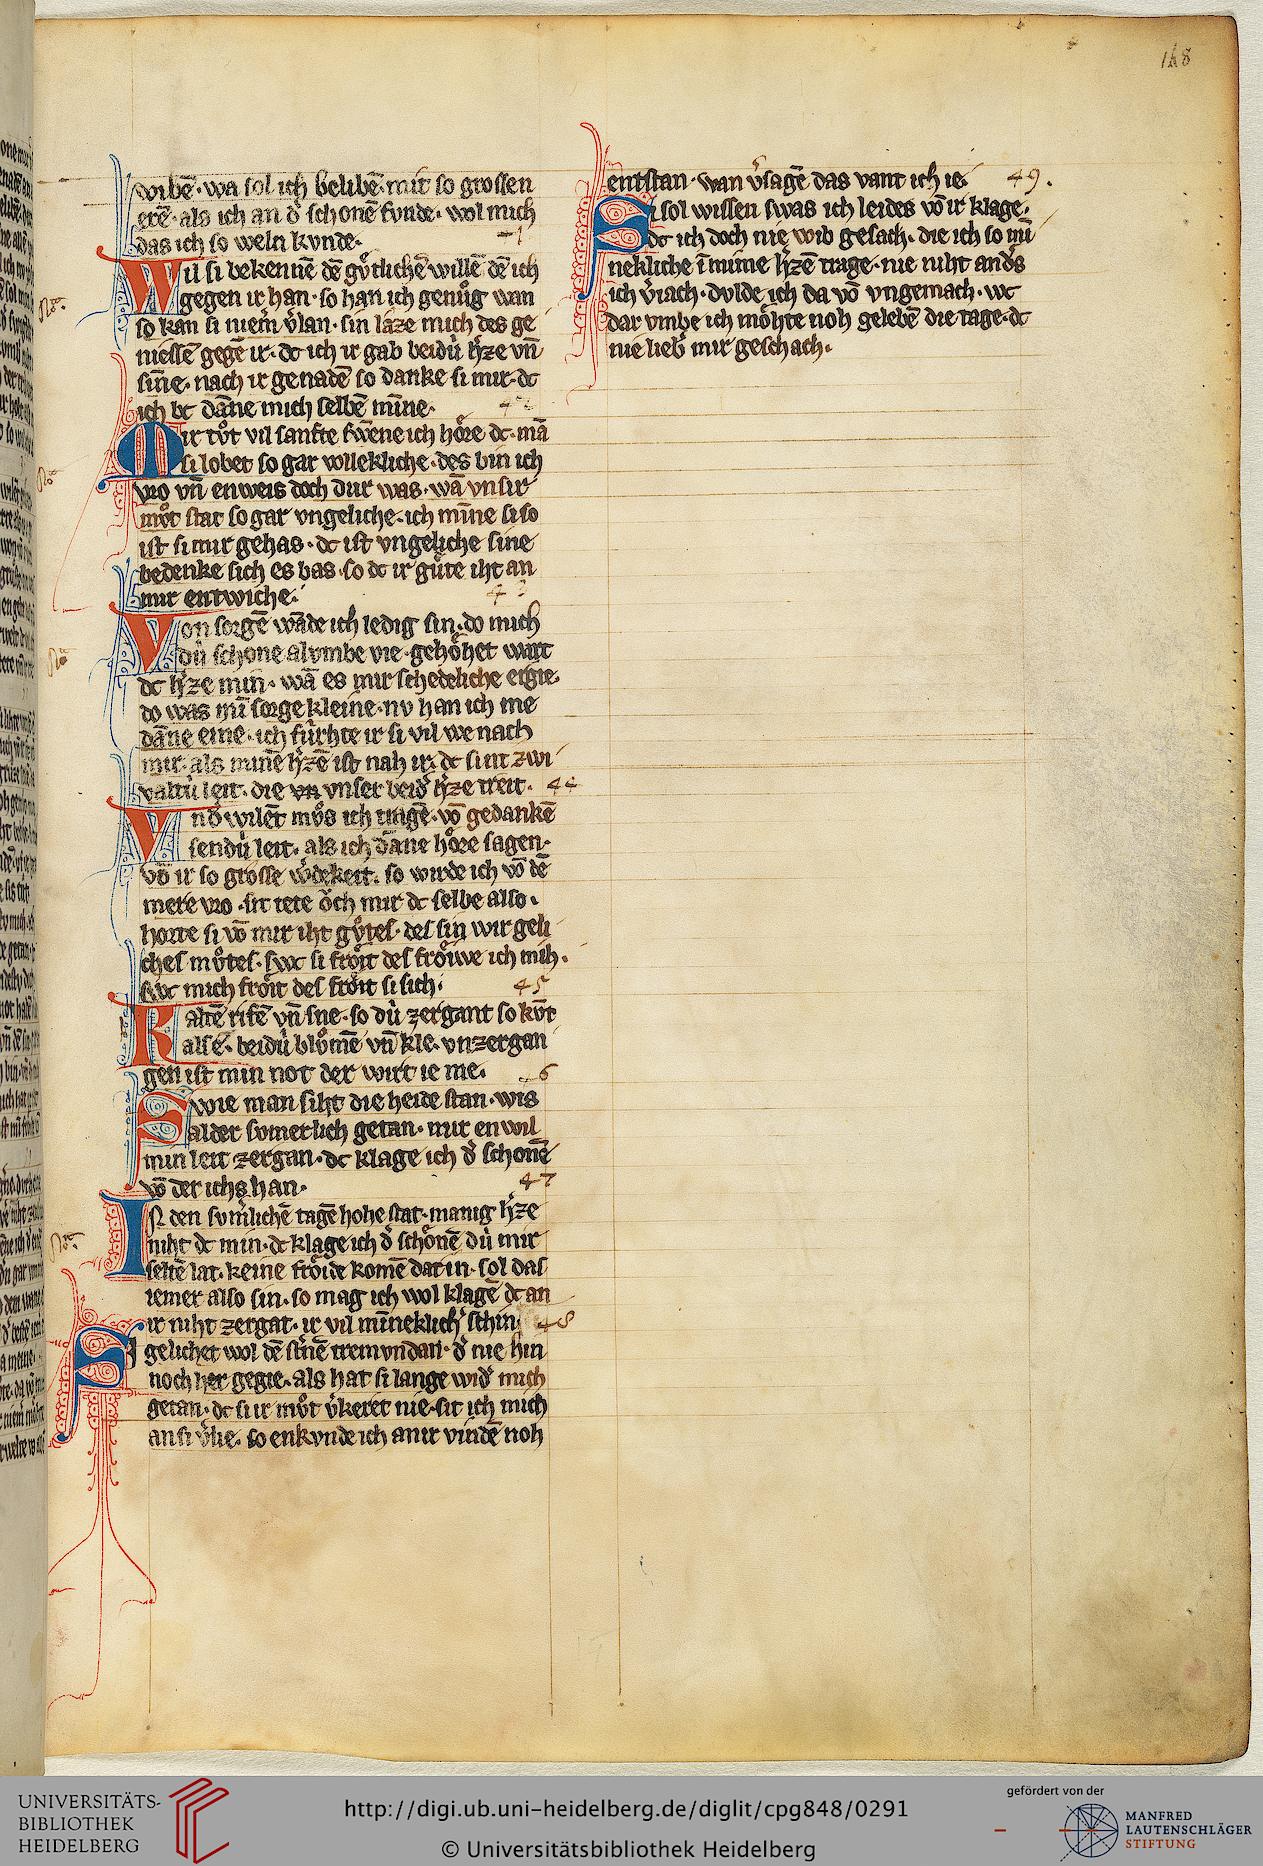 148
wibē· wa sol ich belibē· mit so grossen
erē· als ich an d͛ schonē funde· wol mich
das ich so weln kvnde·
Wil si bekennē dē gv̊tlichē willē dē ich
gegen ir han· so han ich genv̊g wan
so kan si niem̄ v͛lan· sin laze mich des ge
niessē gegē ir· dc ich ir gab beidv̍ h͛ze vn̄
sin̄e· nach ir genadē so danke si mir· dc
ich bc dan̄e mich selbē min̄e·
Mir tv̊t vil sanfte swēne ich hŏre dc· mā
si lobet so gar willekliche· des bin ich
vro vn̄ enweis doch dur was· wā vnsir
mv̊t stat so gar vngeliche· ich min̄e si so
ist si mir gehas· dc ist vngeliche sine
bedenke sich es bas· so dc ir gv̍te iht an
mir entwiche·
43
Von sorgē wāde ich ledig sin· do mich
dv̍ schone al vmbe vie· gehŏhet wart
dc h͛ze min· wā es mir schedeliche ergie·
do was min̄ sorge kleine· nv han ich me
dan̄e eine· ich fv̍rhte ir si vil we nach
mir· als minē h͛zē ist nah ir· dc sint zwi
valtv̍ leit· die vn vnser beid͛ h͛ze treit·
44
Vnd͛wilēt mv̊s ich tragē· vō gedankē
sendv̍ leit· als ich dāne hŏre sagen·
vō ir so grosse w͛dekeit· so wirde ich vō dē
mere vro· sit tete ŏch mir dc selbe also·
horte si vō mir iht gv̊tes· des sin wir geli
ches mv̊tes· swc si frŏit des frŏiwe ich mih·
swc mich frŏit des frŏit si sich·
45
Kaltē rifē vn̄ sne· so dv̍ zergant so kv̄t
als ē· beidv̍ blv̊mē vn̄ kle· vnzergan
gen ist min not der wirt ie me·
6
Swie man siht die heide stan· wis
alder svmerlich getan· mir en wil
min leit zergan· dc klage ich d͛ schonē
vō der ichs han·
47
IN den svm͛lichē tagē hohe stat· manig h͛ze
niht dc min· dc klage ich d͛ schŏnē dv̍ mir
seltē lat· keine frŏide komē dar in· sol das
iemer also sin· so mag ich wol klagē dc an
ir niht zergat· ir vil min̄eklich͛ schin·
48
Si gelichet wol dē st͛nē tremvndan· d͛ nie hin
noch her gegie· als hat si lange wid͛ mich
getan· dc si ir mv̊t v͛keret nie· sit ich mich
an si v͛lie· so enkvnde ich an ir vindē noh
entstan· wan v͛sagē das vant ich ie·
49·
Si sol wissen swas ich leides vō ir klage·
dc ich doch nie wib gesach· die ich so min̄
nekliche ī mime h͛zē trage· nie niht and͛s
ich v͛iach· dvlde ich da vō vngemach· wc
dar vmbe ich mŏhte noh gelebē die tage· dc
nie lieb͛ mir geschach·
UNIVERSITÄTS-
BIBLIOTHEK
HEIDELBERG
http://digi.ub.uni-heidelberg.de/diglit/cpg848/0291
© Universitätsbibliothek Heidelberg
gefördert von der
MANFRED
LAUTENSCHLÄGER
STIFTUNG